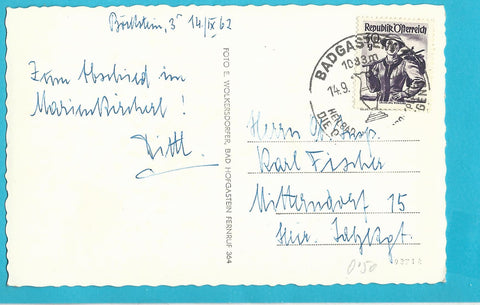 Böckstein, 3' 14/IX 62
Zum Abschied im
Marienkircherl!
FOTO E. WOLKERSDORFER, BAD HOFGASTEIN FERNRUF 364
Republik Österreich
BADGASTEIN
1083m
14.9.
Herrn
Karl Fischer
Mitterndorf 15
Steir. Salzkgt.
0'50